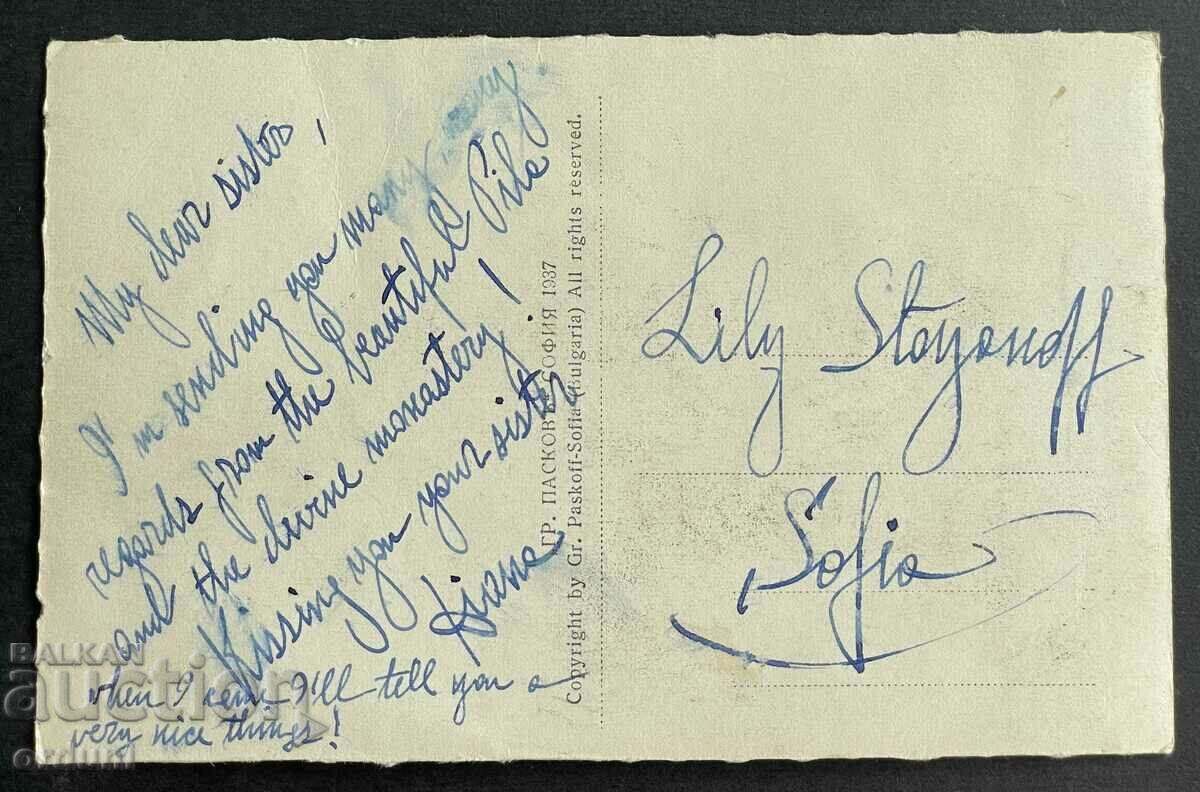 My dear sister,
I'm sending you many, many
regards from the beautiful Rila
and the divine monastery!
Kissing you your sister
when I come I'll tell you a
very nice things!
ГР. ПАСКОВЪ СОФИЯ 1937
Copyright by Gr. Paskoff-Sofia (Bulgaria) All rights reserved.
Lily Stoyanoff
Sofia
BALKAN
auction
orduni